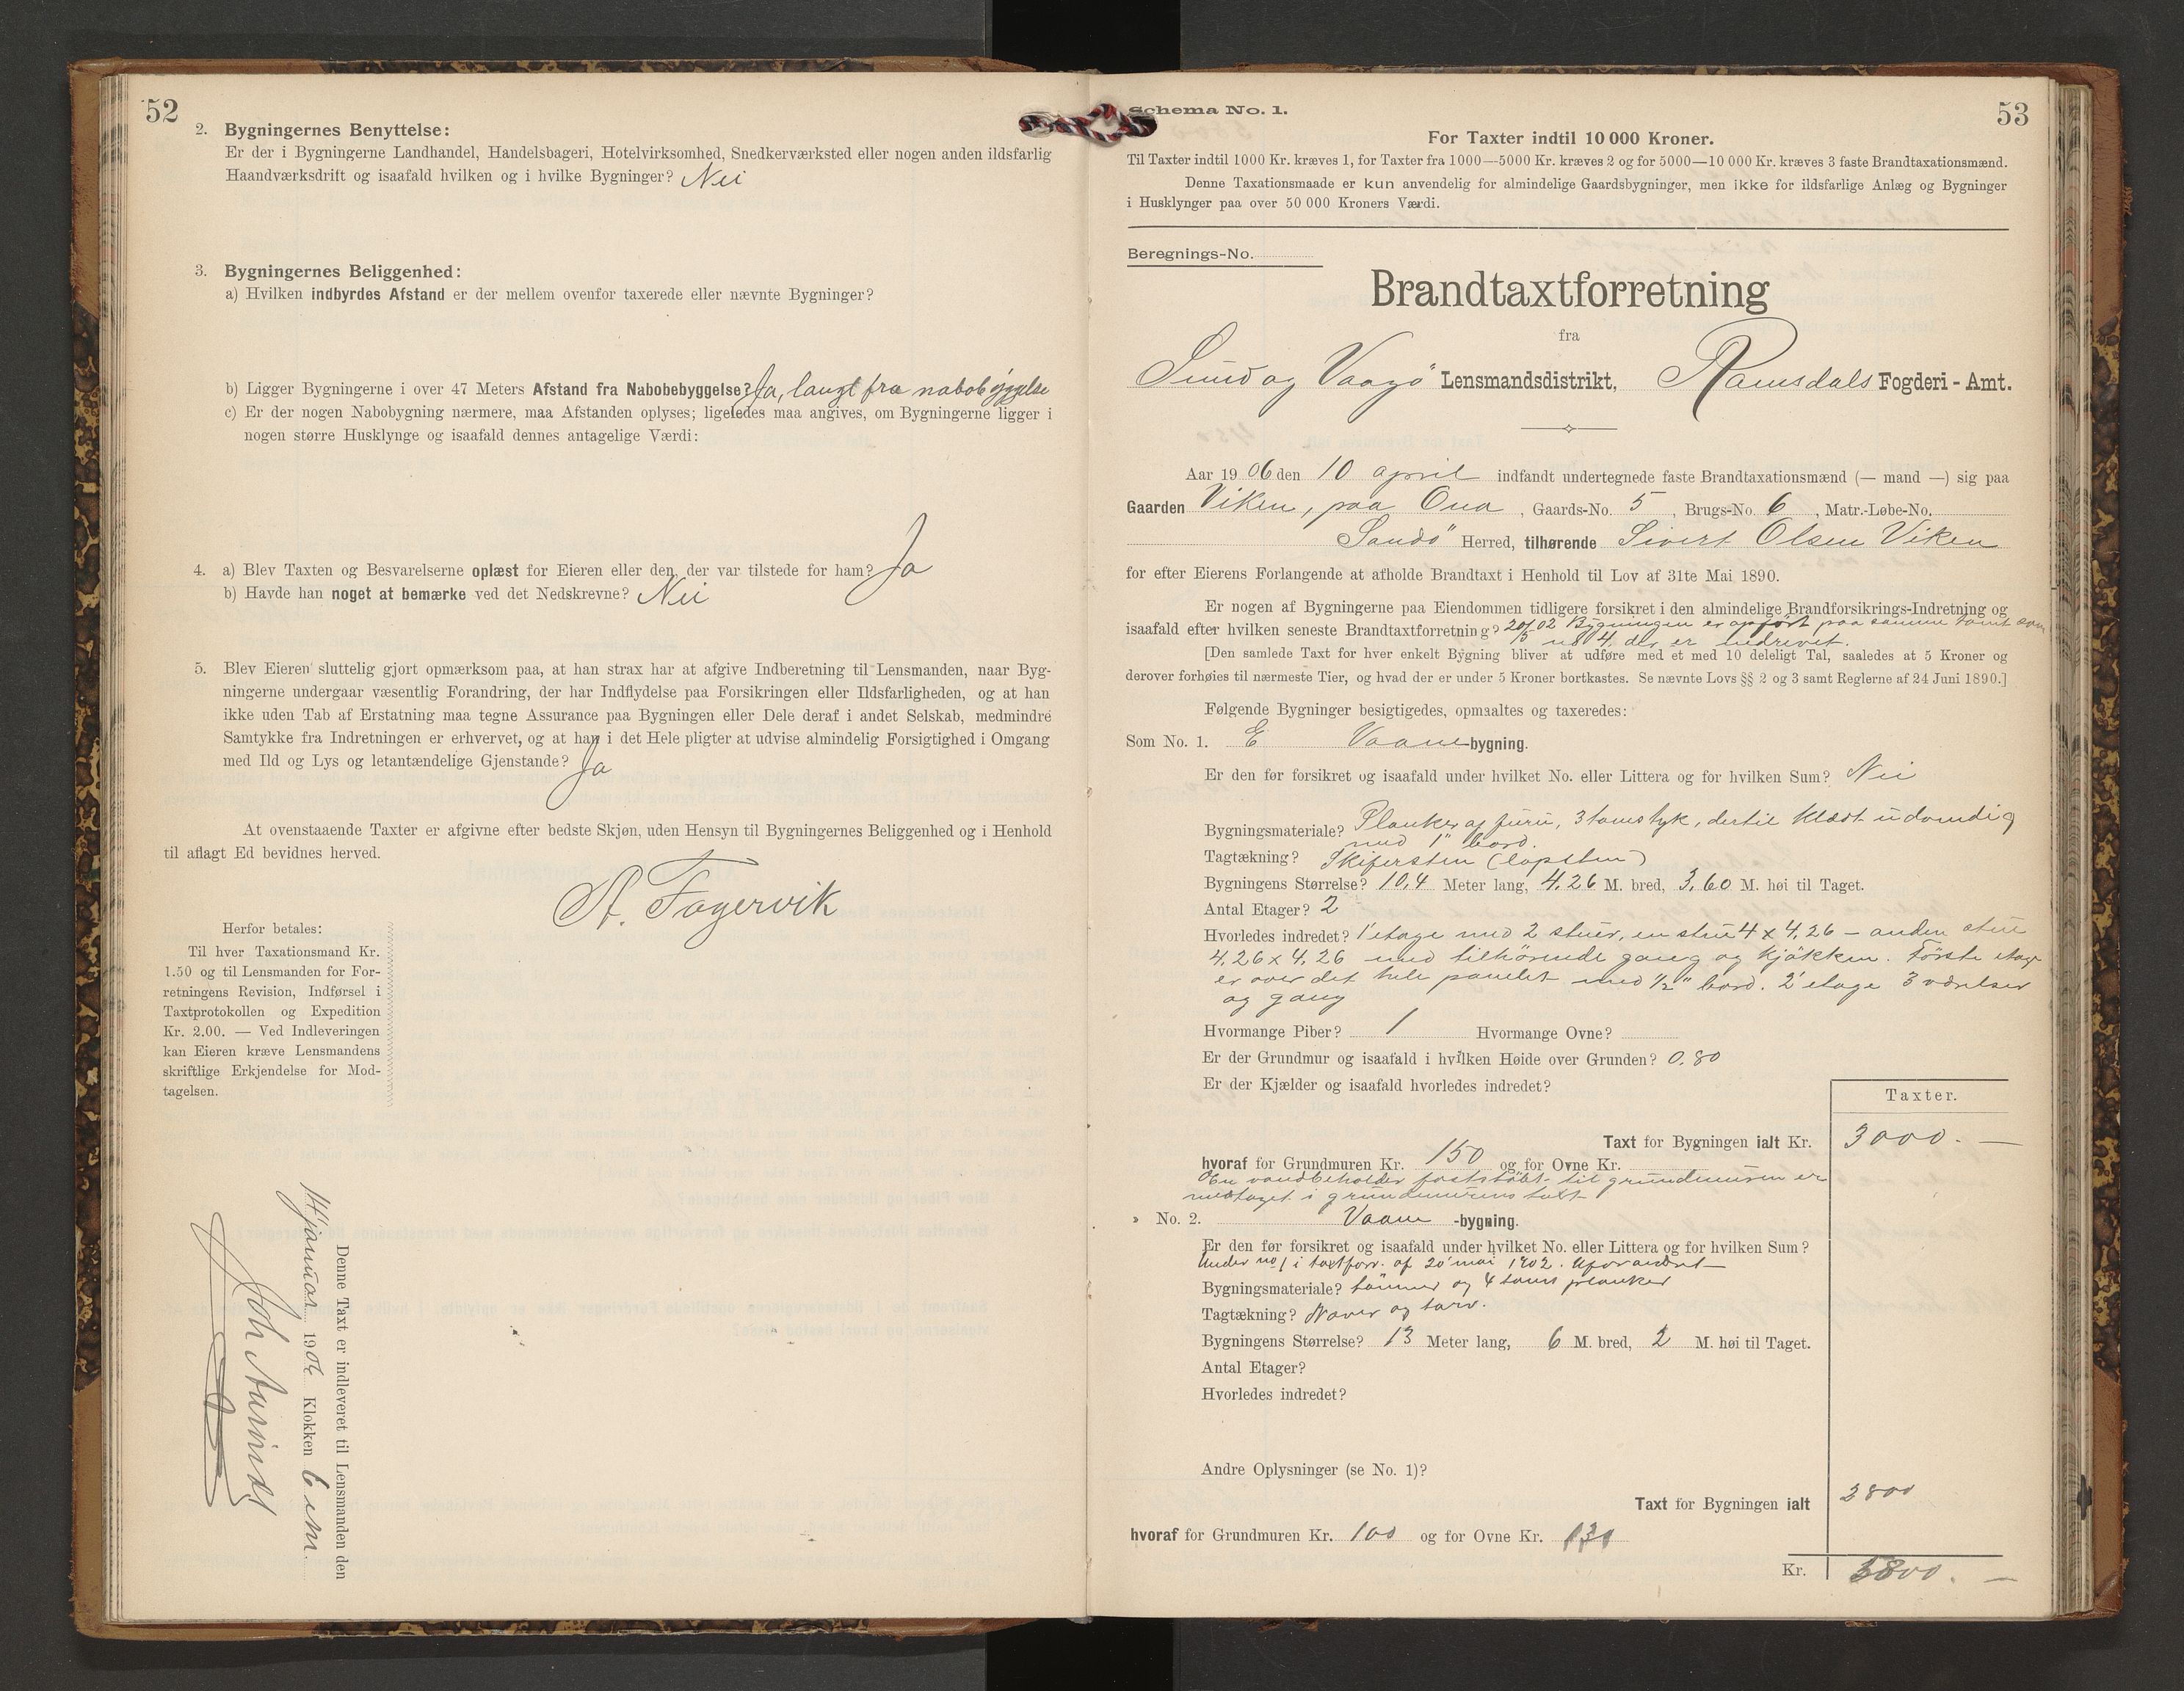 52
2. Bygningernes Benyttelse:
Er der i Bygningerne Landhandel, Handelsbageri, Hotelvirksomhed, Snedkerværksted eller nogen anden ildsfarlig
Haandværksdrift og isaafald hvilken og i hvilke Bygninger? Nei
3. Bygningernes Beliggenhed:
a) Hvilken indbyrdes Afstand er der mellem ovenfor taxerede eller nævnte Bygninger?
b) Ligger Bygningerne i over 47 Meters Afstand fra Nabobebyggelse? Ja, langt fra nabobyggelse
c) Er der nogen Nabobygning nærmere, maa Afstanden oplyses; ligeledes maa angives, om Bygningerne ligger i
nogen større Husklynge og isaafald dennes antagelige Værdi:
4. a) Blev Taxten og Besvarelserne oplæst for Eieren eller den, der var tilstede for ham? Ja
b) Havde han noget at bemærke ved det Nedskrevne? Nei
5. Blev Eieren sluttelig gjort opmærksom paa, at han strax har at afgive Indberetning til Lensmanden, naar Byg-
ningerne undergaar væsentlig Forandring, der har Indflydelse paa Forsikringen eller Ildsfarligheden, og at han
ikke uden Tab af Erstatning maa tegne Assurance paa Bygningen eller Dele deraf i andet Selskab, medmindre
Samtykke fra Indretningen er erhvervet, og at han i det Hele pligter at udvise almindelig Forsigtighed i Omgang
med Ild og Lys og letantændelige Gjenstande? Ja
At ovenstaaende Taxter er afgivne efter bedste Skjøn, uden Hensyn til Bygningernes Beliggenhed og i Henhold
til aflagt Ed bevidnes herved.
A. Fagervik
Herfor betales:
Til hver Taxationsmand Kr.
1.50 og til Lensmanden for For-
retningens Revision, Indførsel i
Taxtprotokollen og Expedition
Kr. 2.00. — Ved Indleveringen
kan Eieren kræve Lensmandens
skriftlige Erkjendelse for Mod-
tagelsen.
Denne Taxt er indleveret til Lensmanden den
januar 1906 Klokken 6 em.
Joh
53
Schema No. 1.
For Taxter indtil 10 000 Kroner.
Til Taxter indtil 1000 Kr. kræves 1, for Taxter fra 1000—5000 Kr. kræves 2 og for 5000—10 000 Kr. kræves 3 faste Brandtaxationsmænd.
Denne Taxationsmaade er kun anvendelig for almindelige Gaardsbygninger, men ikke for ildsfarlige Anlæg og Bygninger
i Husklynger paa over 50 000 Kroners Værdi.
Beregnings-No.
Brandtaxtforretning
fra
Sund og Vaagö Lensmandsdistrikt, Ramsdals Fogderi - Amt.
Aar 1906 den 10 april indfandt undertegnede faste Brandtaxationsmænd (— mand —) sig paa
Gaarden Viken, paa Ona, Gaards-No. 5, Brugs-No. 6, Matr.-Løbe-No.
Sandö Herred, tilhørende Sivert Olsen Viken
for efter Eierens Forlangende at afholde Brandtaxt i Henhold til Lov af 31te Mai 1890.
Er nogen af Bygningerne paa Eiendommen tidligere forsikret i den almindelige Brandforsikrings-Indretning og
isaafald efter hvilken seneste Brandtaxtforretning? 20/5 02 Bygningen er opført paa samme tomt som
no 4, der er nedrevet.
[Den samlede Taxt for hver enkelt Bygning bliver at udføre med et med 10 deleligt Tal, saaledes at 5 Kroner og
derover forhøies til nærmeste Tier, og hvad der er under 5 Kroner bortkastes. Se nævnte Lovs §§ 2 og 3 samt Reglerne af 24 Juni 1890.]
Følgende Bygninger besigtigedes, opmaaltes og taxeredes:
Som No. 1. E Vaane-bygning.
Er den før forsikret og isaafald under hvilket No. eller Littera og for hvilken Sum? Nei
Bygningsmateriale? Planker af furu, 3 toms tyk, dertil klædt udvendig
med 1" bord.
Tagtækning? Skifersten (lapsten)
Bygningens Størrelse? 10,4 Meter lang, 4,26 M. bred, 3,60 M. høi til Taget.
Antal Etager? 2
Hvorledes indredet? 1' etage med 2 stuer, en stue 4 x 4,26 — anden stue
4,26 x 4,26 med tilhörende gang og kjökken. Förste etage
er over det hele panelet med 1/2" bord. 2' etage 3 værelser
og gang
Hvormange Piber? 1 Hvormange Ovne?
Er der Grundmur og isaafald i hvilken Høide over Grunden? 0,80
Er der Kjælder og isaafald hvorledes indredet?
Taxter.
Taxt for Bygningen ialt Kr. 3000. —
hvoraf for Grundmuren Kr. 150 og for Ovne Kr.
En vandbeholder faststöbt til grundmuren er
medtaget i grundmurens taxt
" No. 2. Vaane -bygning.
Er den før forsikret og isaafald under hvilket No. eller Littera og for hvilken Sum?
Under no 1 i taxtforr. af 20 mai 1902. Uforandret
Bygningsmateriale? tömmer og 4 toms planker
Tagtækning? Næver og torv.
Bygningens Størrelse? 13 Meter lang, 6 M. bred, 2 M. høi til Taget.
Antal Etager?
Hvorledes indredet?
Andre Oplysninger (se No. 1)?
Taxt for Bygningen ialt 2800
hvoraf for Grundmuren Kr. 100 og for Ovne Kr. 130
Kr. 5800. —